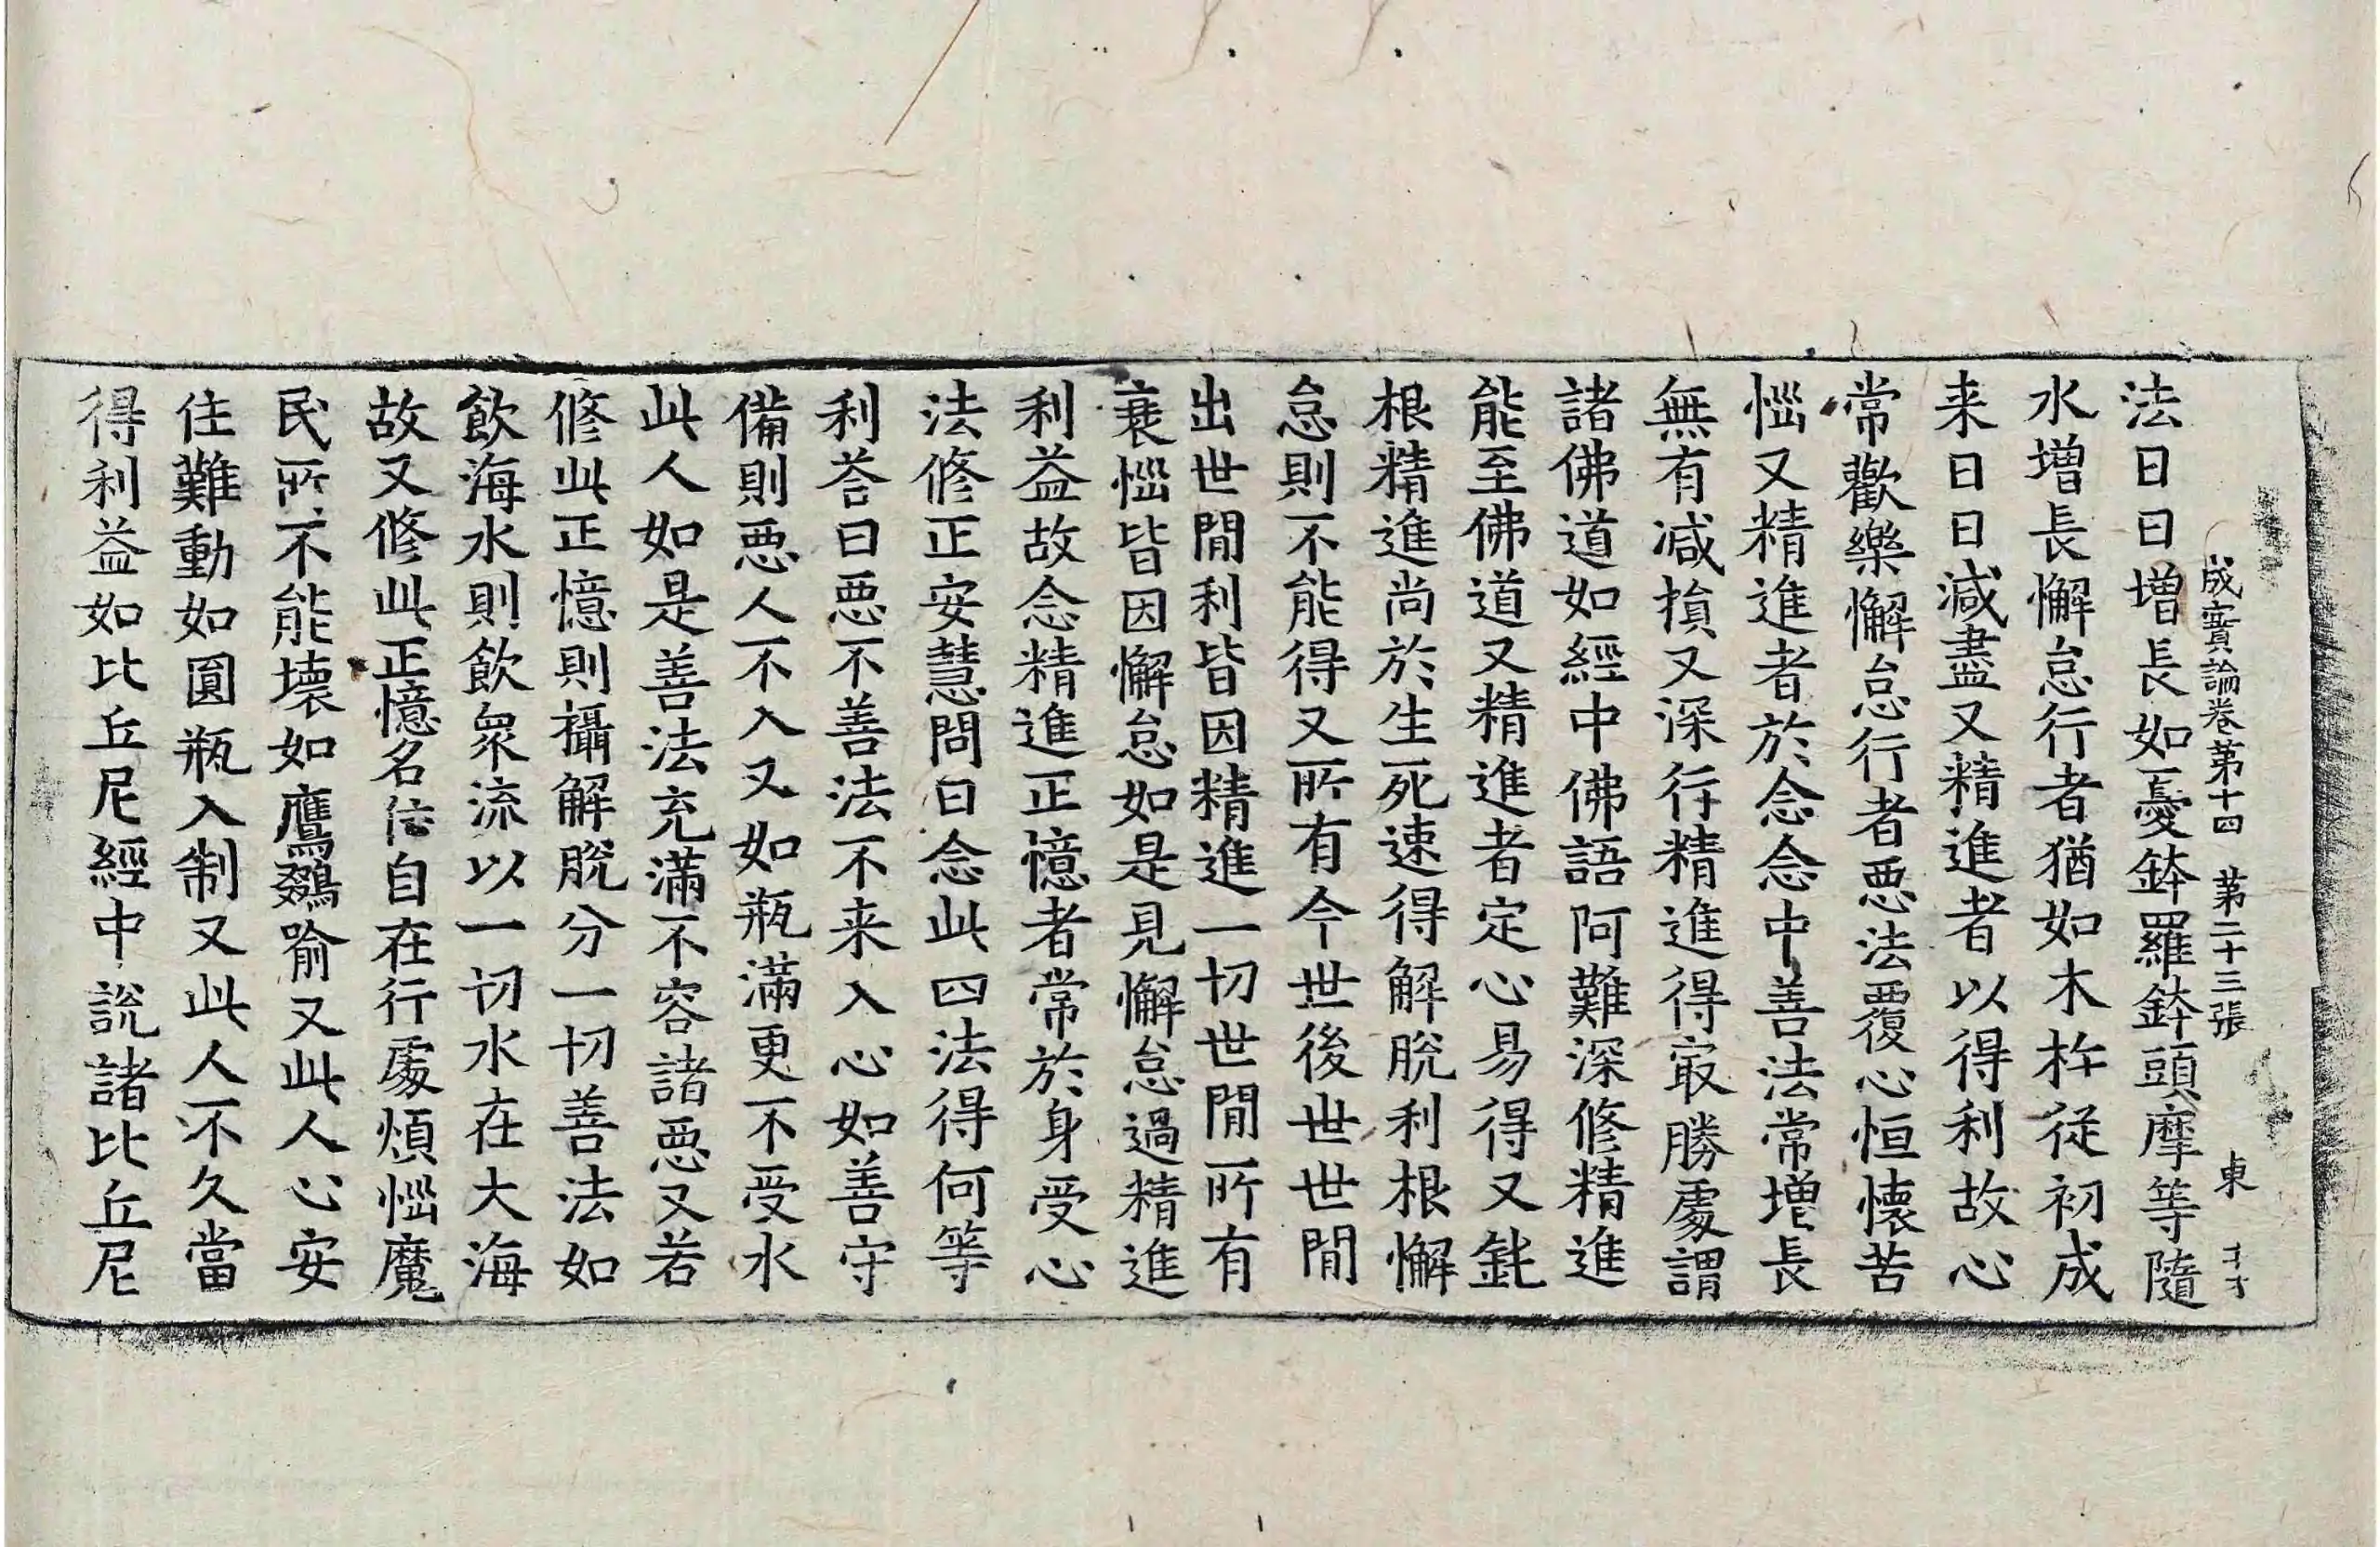 成實論卷第十四 第二十三張 東
法日日增長如憂鉢羅鉢頭摩等隨
水增長懈怠行者猶如木杵從初成
来日日減盡又精進者以得利故心
常歡樂懈怠行者惡法覆心恒懷苦
惱又精進者於念念中善法常增長
無有減損又深行精進得㝡勝處謂
諸佛道如經中佛語阿難深修精進
能至佛道又精進者定心易得又鈍
根精進尚於生死速得解脫利根懈
怠則不能得又所有今世後世世間
出世間利皆因精進一切世間所有
衰惱皆因懈怠如是見懈怠過精進
利益故念精進正憶者常於身受心
法修正安慧問曰念此四法得何等
利荅曰惡不善法不来入心如善守
備則惡人不入又如瓶滿更不受水
此人如是善法充滿不容諸惡又若
修此正憶則攝解脫分一切善法如
飲海水則飲衆流以一切水在大海
故又修此正憶名住自在行處煩惱魔
民所不能壞如鷹鷄喻又此人心安
住難動如圓瓶入制又此人不久當
得利益如比丘尼經中說諸比丘尼